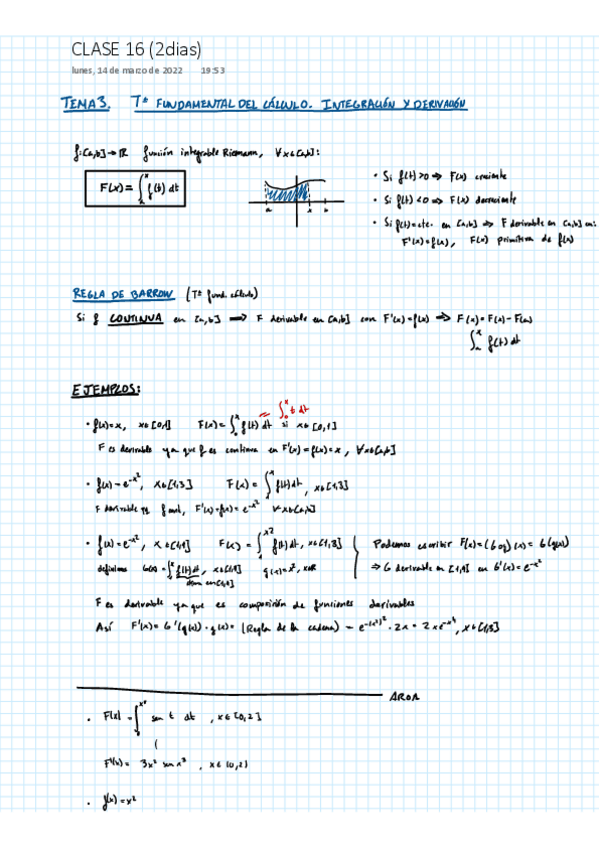 CLASE 16 (2dias)
lunes, 14 de marzo de 2022 19:53
TEMA 3. Tª FUNDAMENTAL DEL CÁLCULO. INTEGRACIÓN Y DERIVACIÓN
f:[a,b]→ℝ función integrable Riemann, ∀x∈[a,b]:
F(x) = ∫ₐˣ f(t) dt
a x b
• Si f(t)>0 ⇒ F(x) creciente
• Si f(t)<0 ⇒ F(x) decreciente
• Si f(t)=cte. en [a,b] ⇒ F derivable en [a,b] en:
F'(x)=f(x), F(x) primitiva de f(x)
REGLA DE BARROW (Tª fund. cálculo)
Si f CONTINUA en [a,b] ⟹ F derivable en [a,b] con F'(x)=f(x) ⟹ F(x)=F(x)-F(a)
∫ₐˣ f(t) dt
EJEMPLOS:
= ∫₀ˣ t dt
• f(x)=x, x∈[0,1] F(x)=∫₀ˣ f(t) dt si x∈[0,1]
F es derivable ya que f es continua en F'(x)=f(x)=x, ∀x∈[a,b]
• f(x)=e^-x², x∈[1,3] F(x)=∫₁ˣ f(t)dt, x∈[1,3]
F derivable f cont, F'(x)=f(x)=e^-x² ∀x∈[a,b]
• f(x)=e^-x², x∈[1,9] F(x)=∫₁^x² f(t)dt, x∈[1,3] Podemos escribir F(x)=(G∘g)(x)=G(g(x))
definimos G(x)=∫₁ˣ f(t)dt, x∈[1,9] g(x)=x², x∈ℝ ⇒ G derivable en [1,9] en G'(x)=e^-x²
F es derivable ya que es composición de funciones derivables
Así F'(x)=G'(g(x))·g'(x)= (Regla de la cadena) = e^-(x²)²·2x = 2xe^-x⁴, x∈[1,3]
• F(x) = ∫₀^x³ sen t dt, x∈[0,2]
F'(x)= 3x² sen x³, x∈(0,2)
• f(x)=x²